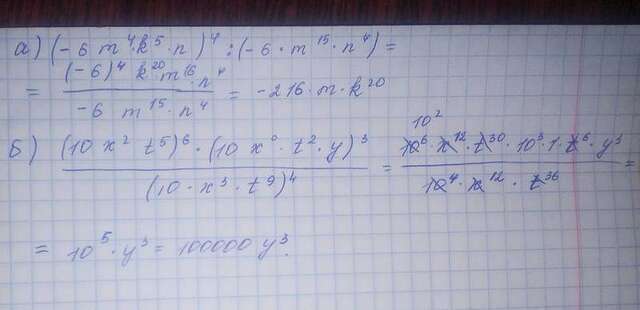 а) (-6 m⁴·k⁵·n)⁴ : (-6·m¹⁵·n⁴) =
= (-6)⁴ k²⁰·m¹⁶·n⁴ / -6 m¹⁵·n⁴ = -216·m·k²⁰
10²
б) (10 x² t⁵)⁶ · (10 x⁰·t²·y)³ / (10·x³·t⁹)⁴ = 10⁶·x¹²·t³⁰·10³·1·t⁶·y³ / 10⁴·x¹²·t³⁶ =
= 10⁵·y³ = 100000 y³.